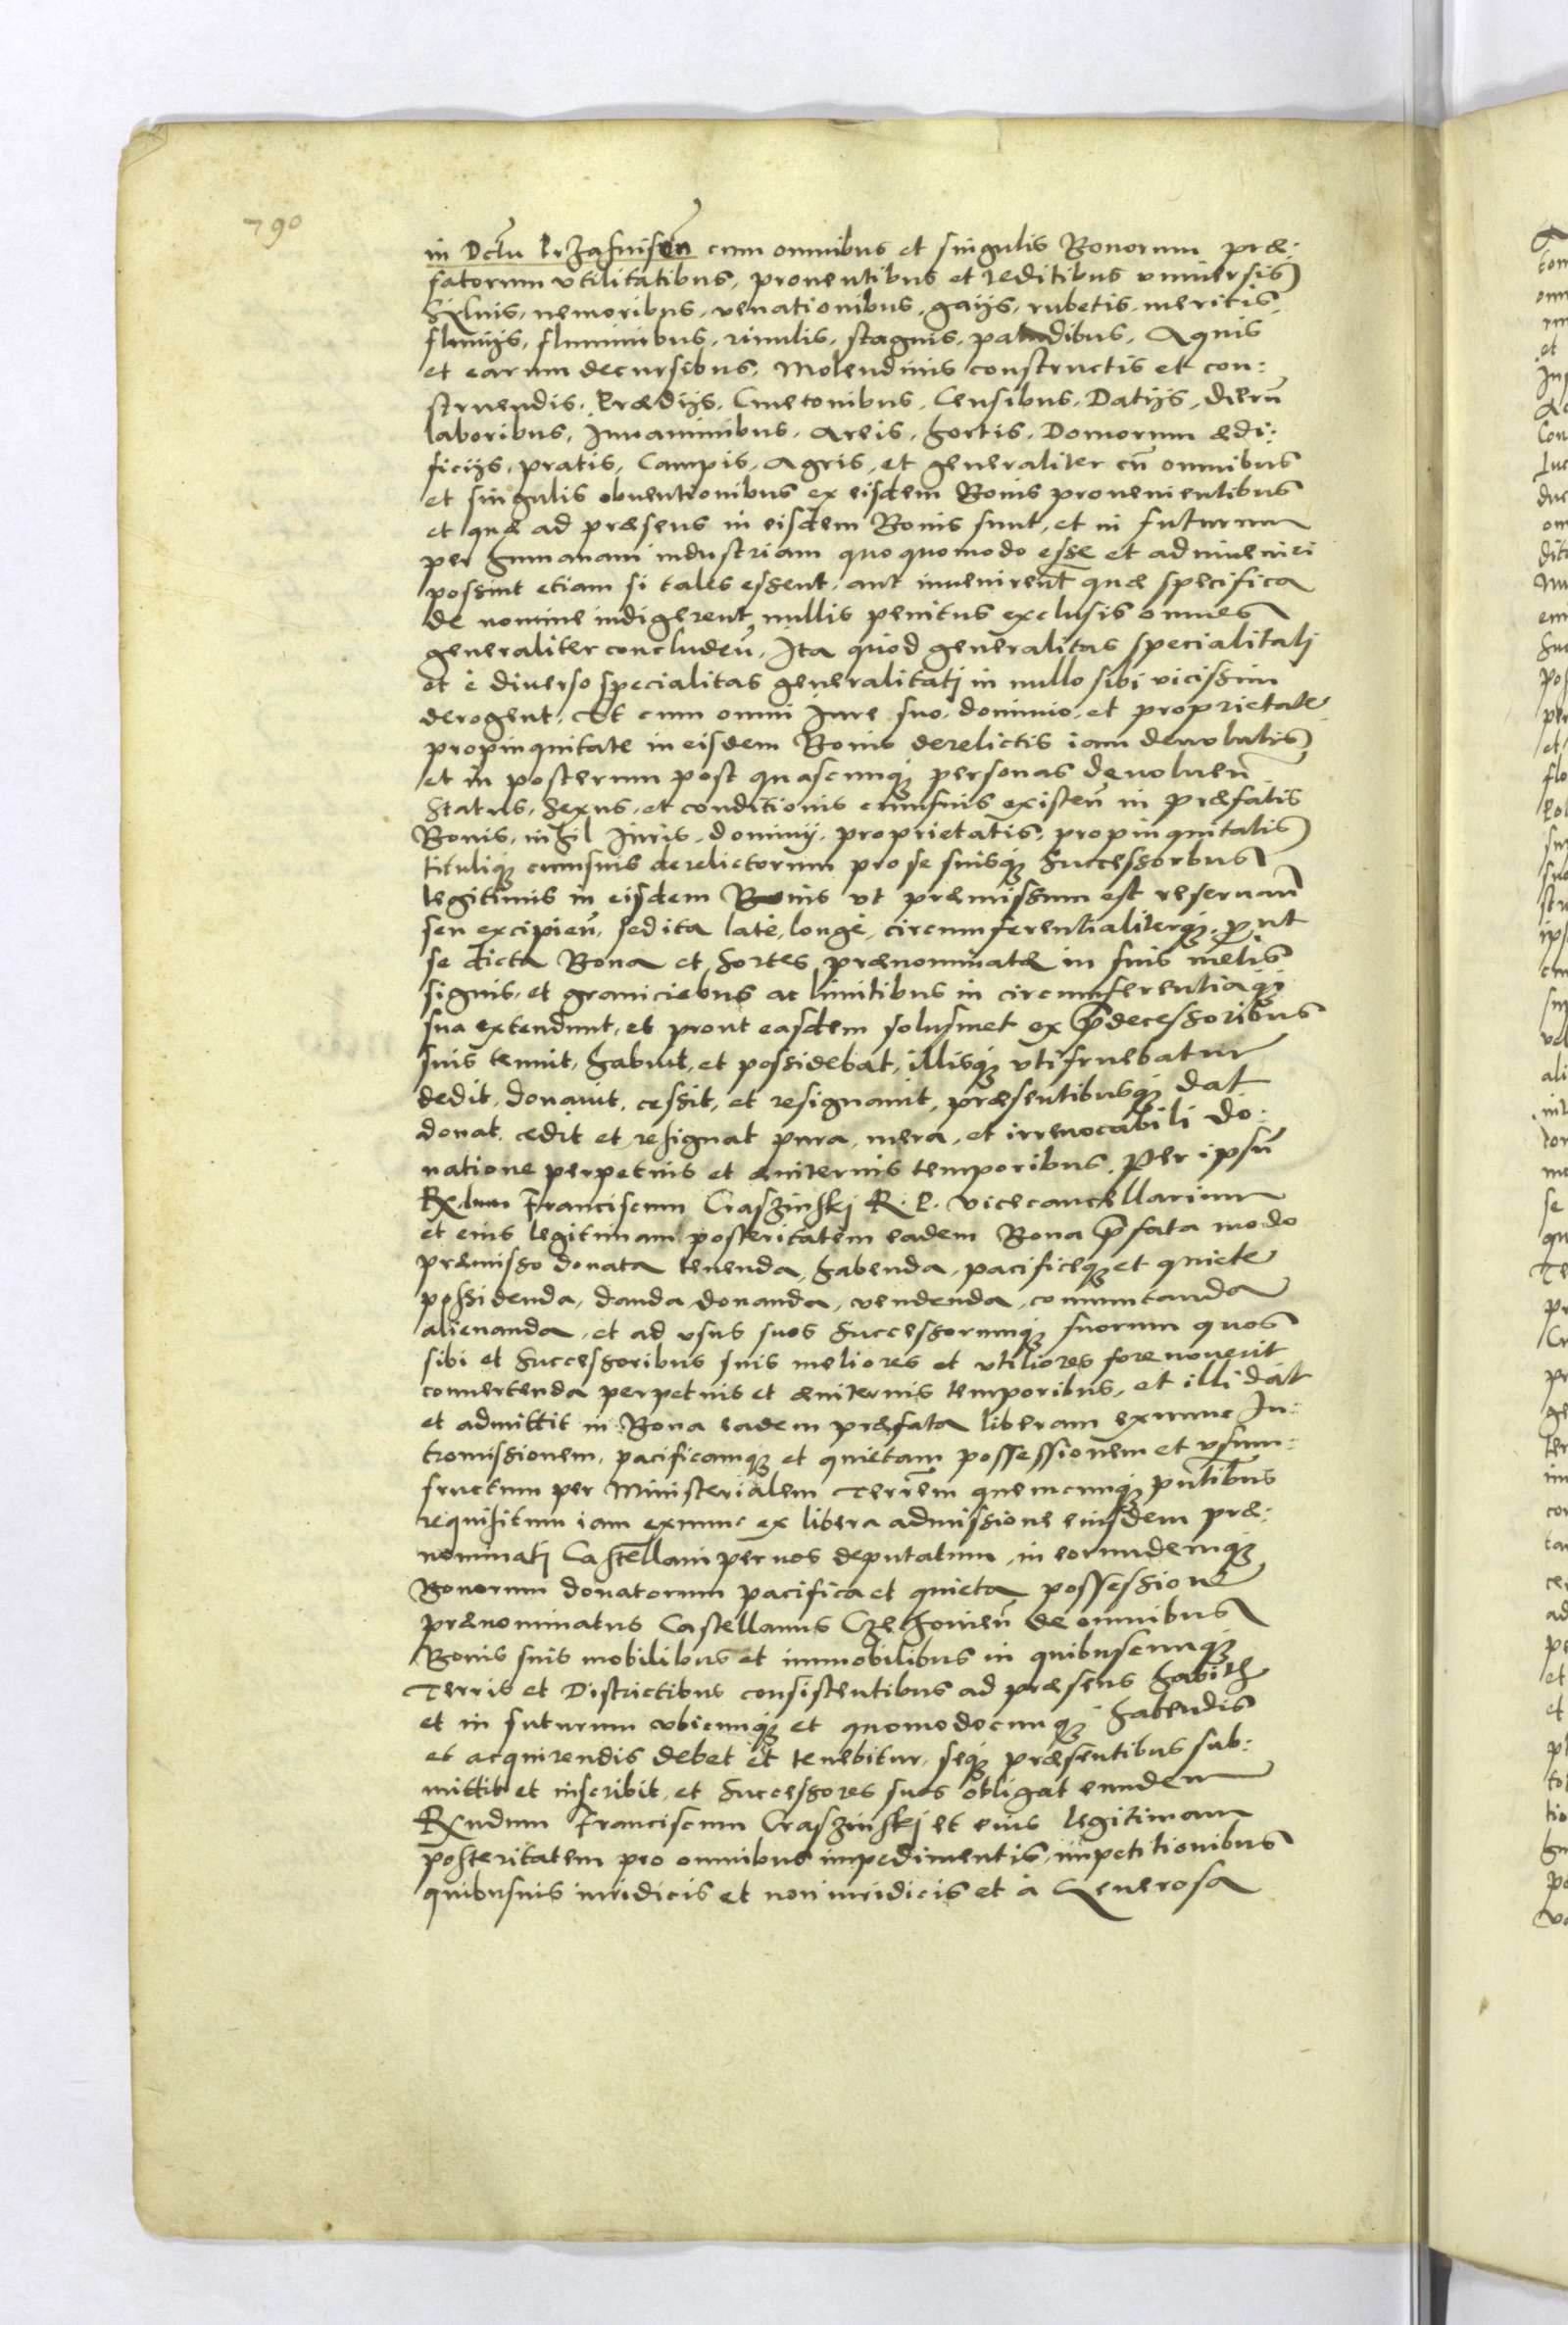 790
in Dctu Przasnisen̄ cum omnibus et singulis Bonorum præ:
fatorum vtilitatibus, prouentibus et reditibus vniuersis
Syluis, nemoribus, venationibus, gaijs, rubetis, mericis
fluuijs, fluminibus, riuulis, stagnis, paludibus, Aquis
et earum decursibus, Molendinis constructis et con:
struendis, Prædijs, Cmetonibus, Censibus, Datijs, dierū
laboribus, Iuuaminibus, Areis, hortis, Domorum ædi:
ficijs, pratis, Campis, Agris, et generaliter cū omnibus
et singulis obuentionibus ex eisdem Bonis prouenientibus
et quæ ad præsens in eisdem Bonis sunt, et in futurum
per humanam industriam quoquomodo esse et adinueniri
possint etiam si tales essent, aut inuenirent quæ specifica
de nomine indigerent, nullis penitus exclusis omnes
generaliter concluden̄, Ita quod generalitas specialitatj
et è diuerso specialitas generalitatj in nullo sibi vicissim
derogent, Et cum omni Iure suo, dominio, et proprietate
propinquitate in eisdem Bonis derelictis iam deuolutis
et in posterum post quascunq; personas deuoluen̄
Status, Sexus, et conditionis cuiusuis existen̄ in præfatis
Bonis, nihil Iuris, dominij, proprietatis, propinquitatis
tituliq; cuiusuis derelictorum pro se suisq; Successoribus
legitimis in eisdem Bonis vt præmissum est reseruan̄
seu excipien̄, sed ita latè, longè, circumferentialiterq;, prout
se dicta Bona et Sortes prænominatæ in suis metis
signis, et graniciebus ac limitibus in circumferentiaq;
sua extendunt, et prout easdem solusmet ex prædecessoribus
suis tenuit, habuit, et possidebat, illisq; vtifruebatur
dedit, donauit, cessit, et resignauit, præsentibusq; dat
donat, cedit et resignat pura, mera, et irreuocabili do:
natione perpetuis et æuiternis temporibus. Per ipsū
Rndum Franciscum Craszinskj R. P. vicecancellarium
et eius legitimam posteritatem eadem Bona præfata modo
præmisso donata tenenda, habenda, pacificeq; et quiete
possidenda, danda, donanda, vendenda, commutanda
alienanda, et ad vsus suos Successorumq; suorum quos
sibi et Successoribus suis meliores et vtiliores fore nouerit
conuertenda perpetuis et æuiternis temporibus, et illi dat
et admittit in Bona eadem præfata liberam exnunc In:
tromissionem, pacificamq; et quietam possessionem et vsum:
fructum per Ministerialem Terrēm quemcunq; pn̄tibus
requisitum iam exnunc ex libera admissione eiusdem præ:
nominatj Castellani per nos deputatum, in eorundemq;
Bonorum donatorum pacifica et quieta possessione
prænominatus Castellanus Czechouien̄ de omnibus
Bonis suis mobilibus et immobilibus in quibuscunq;
Terris et Districtibus consistentibus ad præsens habitis
et in futurum vbicunq; et quomodocunq; habendis
et acquirendis debet et tenebitur, seq; præsentibus sub:
mittit et inscribit, et Successores suos obligat eundem
Rndum Franciscum Craszinskj et eius legitimam
posteritatem pro omnibus impedimentis, impetitionibus
quibusuis iuridicis et non iuridicis et à Generosa